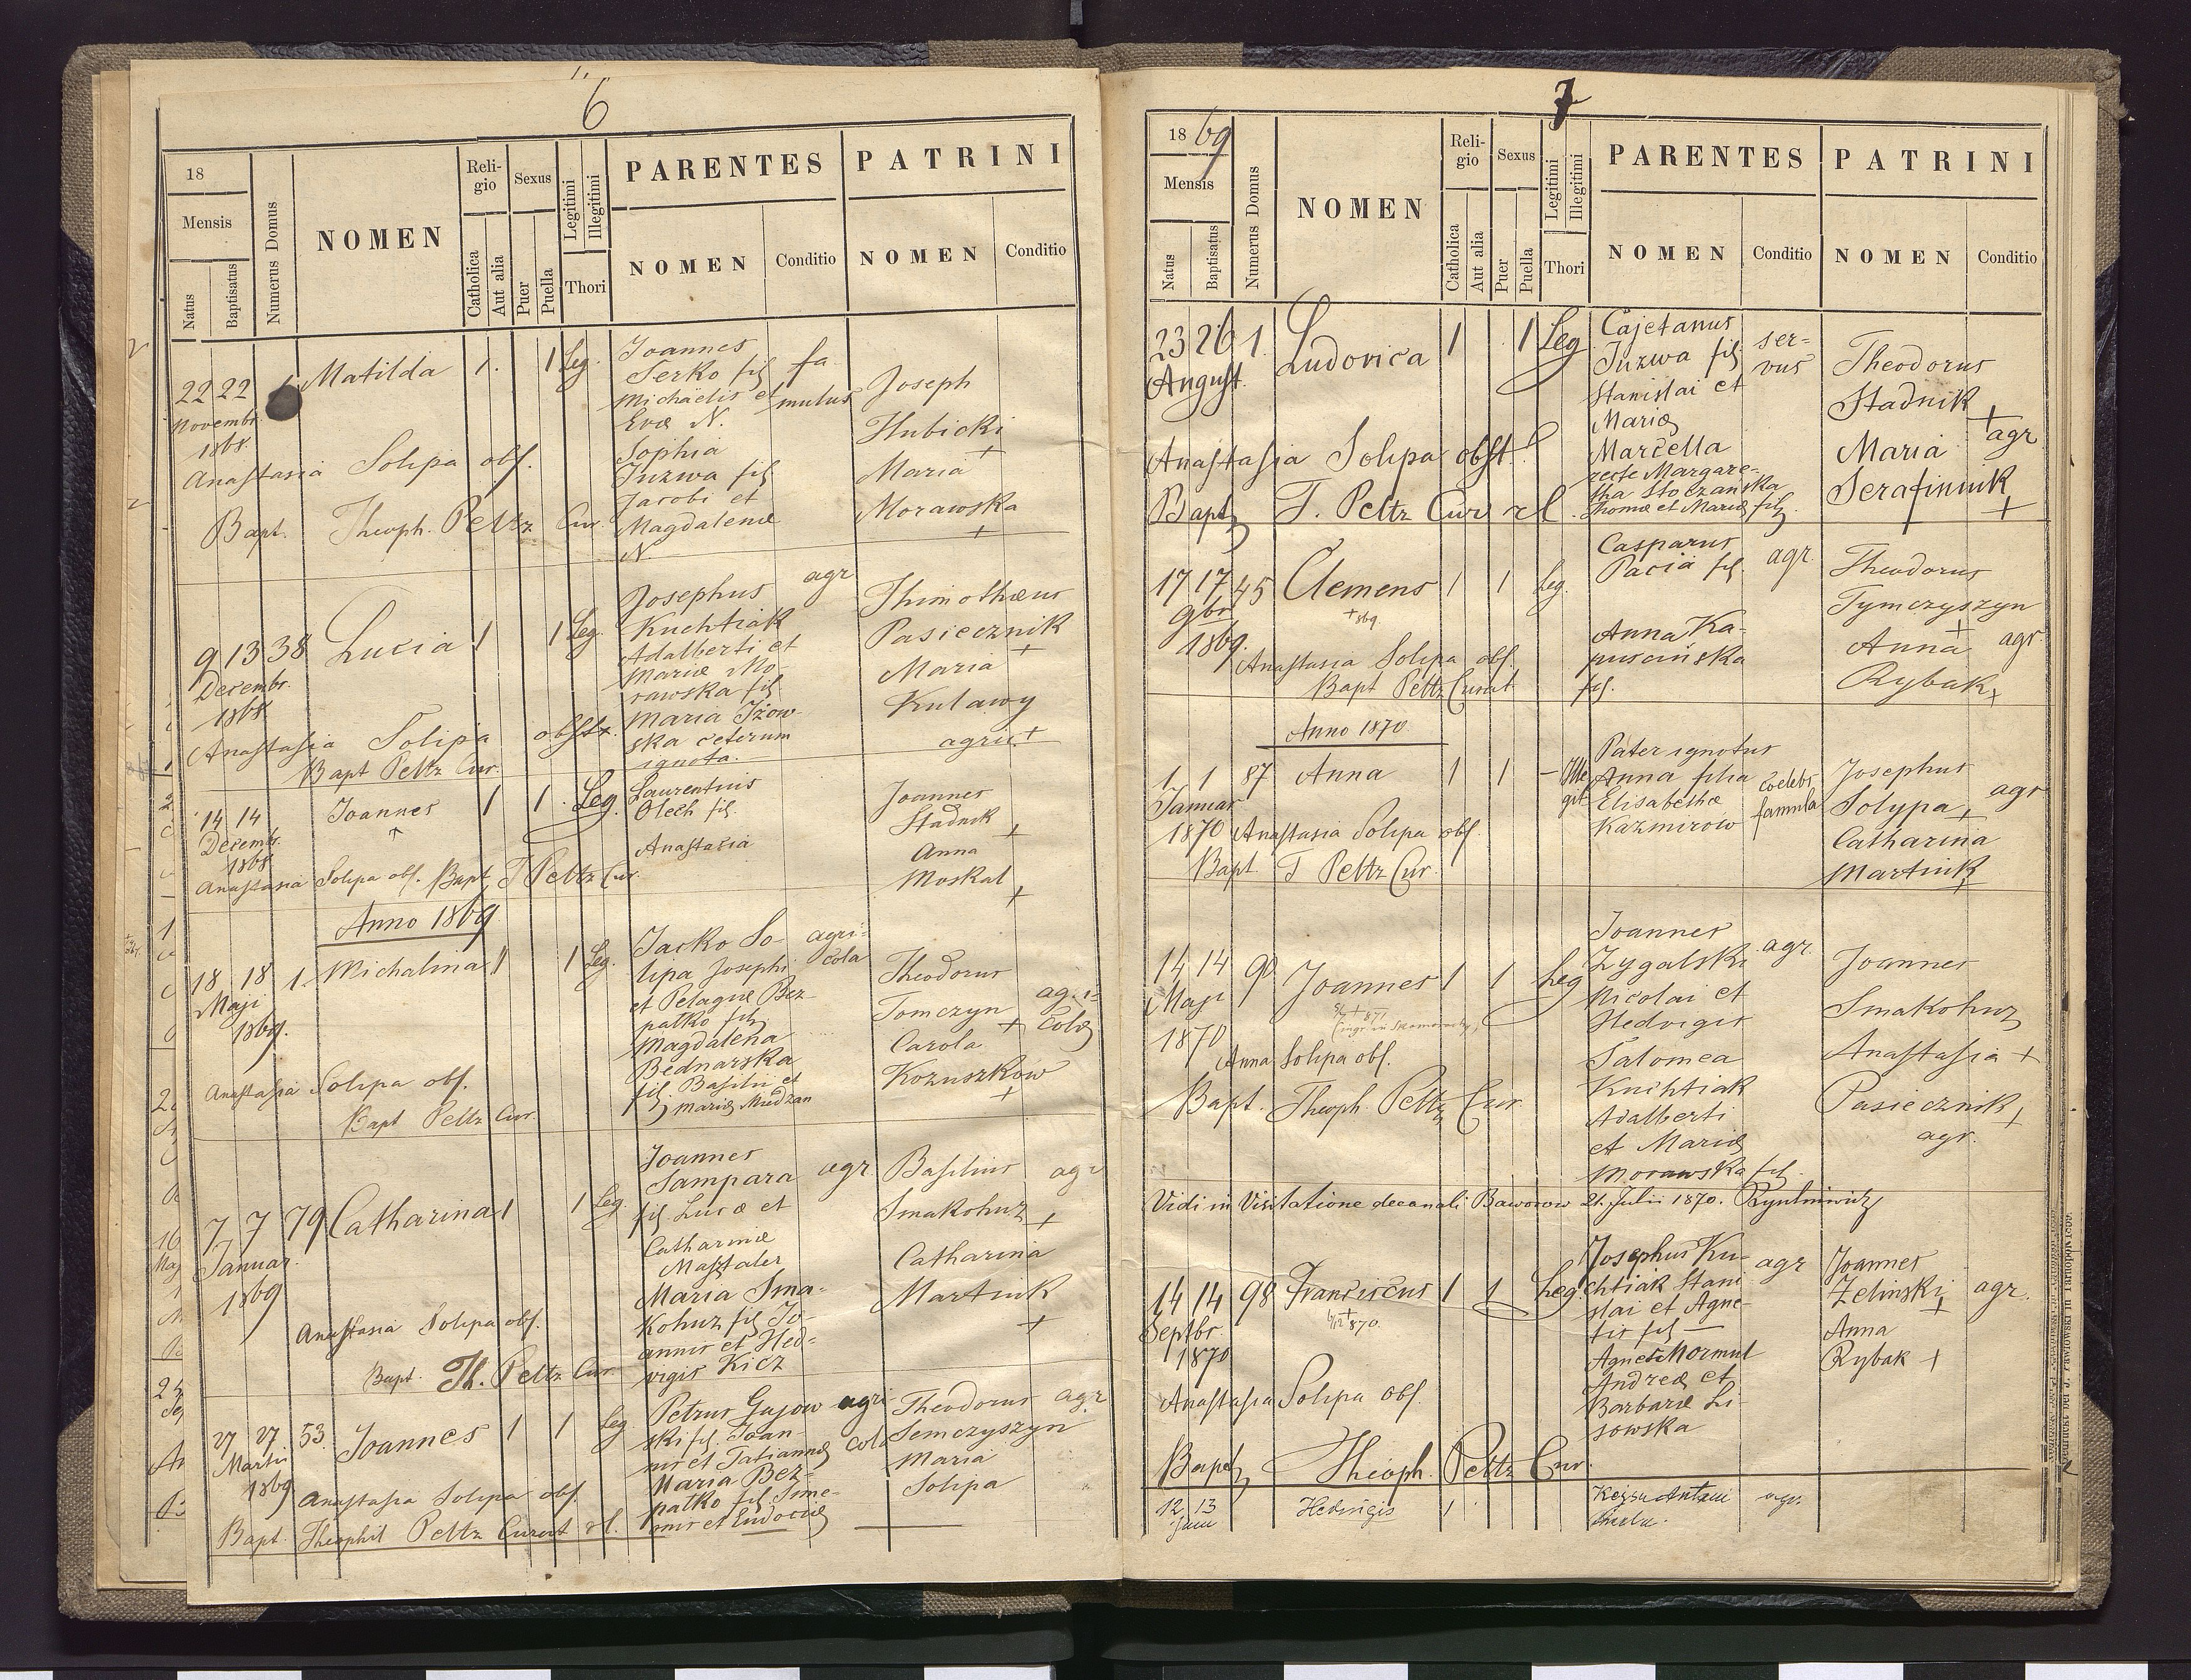 6
18
Mensis
Natus
Baptisatus
Numerus Domus
NOMEN
Reli-
gio
Catholica
Aut alia
Sexus
Puer
Puella
Legitimi
Illegitimi
Thori
PARENTES
NOMEN
Conditio
PATRINI
NOMEN
Conditio
22 22 Matilda 1. 1 Leg.
Novembr.
1868
Joannes
Serko fil
Michaelis et
Evæ N.
fa
mulus
Sophia
Juzwa fil
Jacobi et
Magdalenæ
N
Joseph
Hubicki
+
Maria
Morawska
+
Anastasia Solipa obs.
Bapt. Theoph. Peltz Cur.
9 13 38 Lucia 1 1 Leg.
Decembr.
1868
Josephus agr
Kuchtiak
Adalberti et
Mariæ Mo-
rawska fil
Maria Iżow-
ska ceterum
ignota.
Thimothæus
Pasiecznik
+
Maria
Kulawy
agric. +
Anastasia Solipa obstr.
Bapt Peltz Cur.
14 14 Joannes 1 1 Leg
Decembr.
1868
Laurentius
Olech fil.
Anastasia
Joannes
Stadnik
+
Anna
Moskal
+
Anastasia Solipa obs. Bapt T Peltz Cur.
Anno 1869
18 18 1. Michalina 1 1 Leg.
Maji
1869.
Jacko So- agri-
lipa Josephi cola
et Pelagiæ Bez-
patko fil
Magdalena
Bednarska
fil. Basilii et
Mariæ Mudzan
Theodorus
Tomczyn agri-
+ colæ
Carola
Kozuszkow
+
Anastasia Solipa obs.
Bapt Peltz Cur.
7 7 79 Catharina 1 1 Leg.
Januar.
1869
Joannes
Sampara agr.
fil Lucæ et
Catharinæ
Masztaler
Maria Sma-
kohuz fil Jo-
annis et Hed-
vigis Kicz
Basilius agr
Smakohuz
+
Catharina
Martiuk
+
Anastasia Solipa obs.
Bapt. Th. Peltz Cur
27 27 53. Joannes 1 1 Leg
Martii
1869
Petrus Gajow- agri
ski fil. Joan- cola
nis et Tatiannæ
Maria Bez-
patko fil Sime-
nis et Eudociæ
Theodorus agr
Semczyszyn
Maria
Solipa
Anastasia Solipa obs.
Bapt. Theophil Peltz Curat rl.
7
1869
Mensis
Natus
Baptisatus
Numerus Domus
NOMEN
Reli-
gio
Catholica
Aut alia
Sexus
Puer
Puella
Legitimi
Illegitimi
Thori
PARENTES
NOMEN
Conditio
PATRINI
NOMEN
Conditio
23 26 1. Ludovica 1 1 Leg
August.
Cajetanus ser-
Juzwa fil vus
Stanislai et
Mariæ
Marcella
recte Margare-
tha Stoczanska
Thomæ et Mariæ fil.
Theodorus
Stadnik
+
Maria agr
Serafiniuk
+
Anastasia Solipa obst.
Bapt T. Peltz Cur rl.
17 17 45 Clemens 1 1 Leg.
9br
1869.
+ 869
Casparus agr.
Pacia fil
Anna Ka-
puscinska
fil.
Theodorus
Tymczyszyn
+
Anna agr.
Rybak +
Anastasia Solipa obs.
Bapt Peltz Curat
Anno 1870
1 1 87 Anna 1 1 – Ille
git
Januar
1870
Pater ignotus
Anna filia coelebs
Elisabethæ famula
Kazmirow
Josephus
Solypa + agr
Catharina
Martiuk
+
Anastasia Solipa obs.
Bapt T Peltz Cur.
14 14 90 Joannes 1 1 Leg
Maji
1870
Joannes
Zygalski agr.
Nicolai et
Hedvigis
Salomea
Kuchtiak
Adalberti
et Mariæ
Morawska fil.
Joannes
Smakohuz
Anastasia +
Pasiecznik
+
agr.
Anna Solipa obs.
Bapt. Theoph. Peltz Cur.
Vidi in Visitatione decanali Baworow 21. Julii 1870.
14 14 98 Franciscus 1 1 Leg.
Septbr.
1870
+ 870.
Josephus Ku- agr
chtiak Stani
slai et Agne-
tis fil —
Agnes Mormul
Andreæ et
Barbaræ Li-
sowska
Joannes
Zelinski agr.
+
Anna
Rybak +
Anastasia Solipa obs.
Bapt Theoph. Peltz Cur.
12 13 Hedvigis 1
Juni
agr.